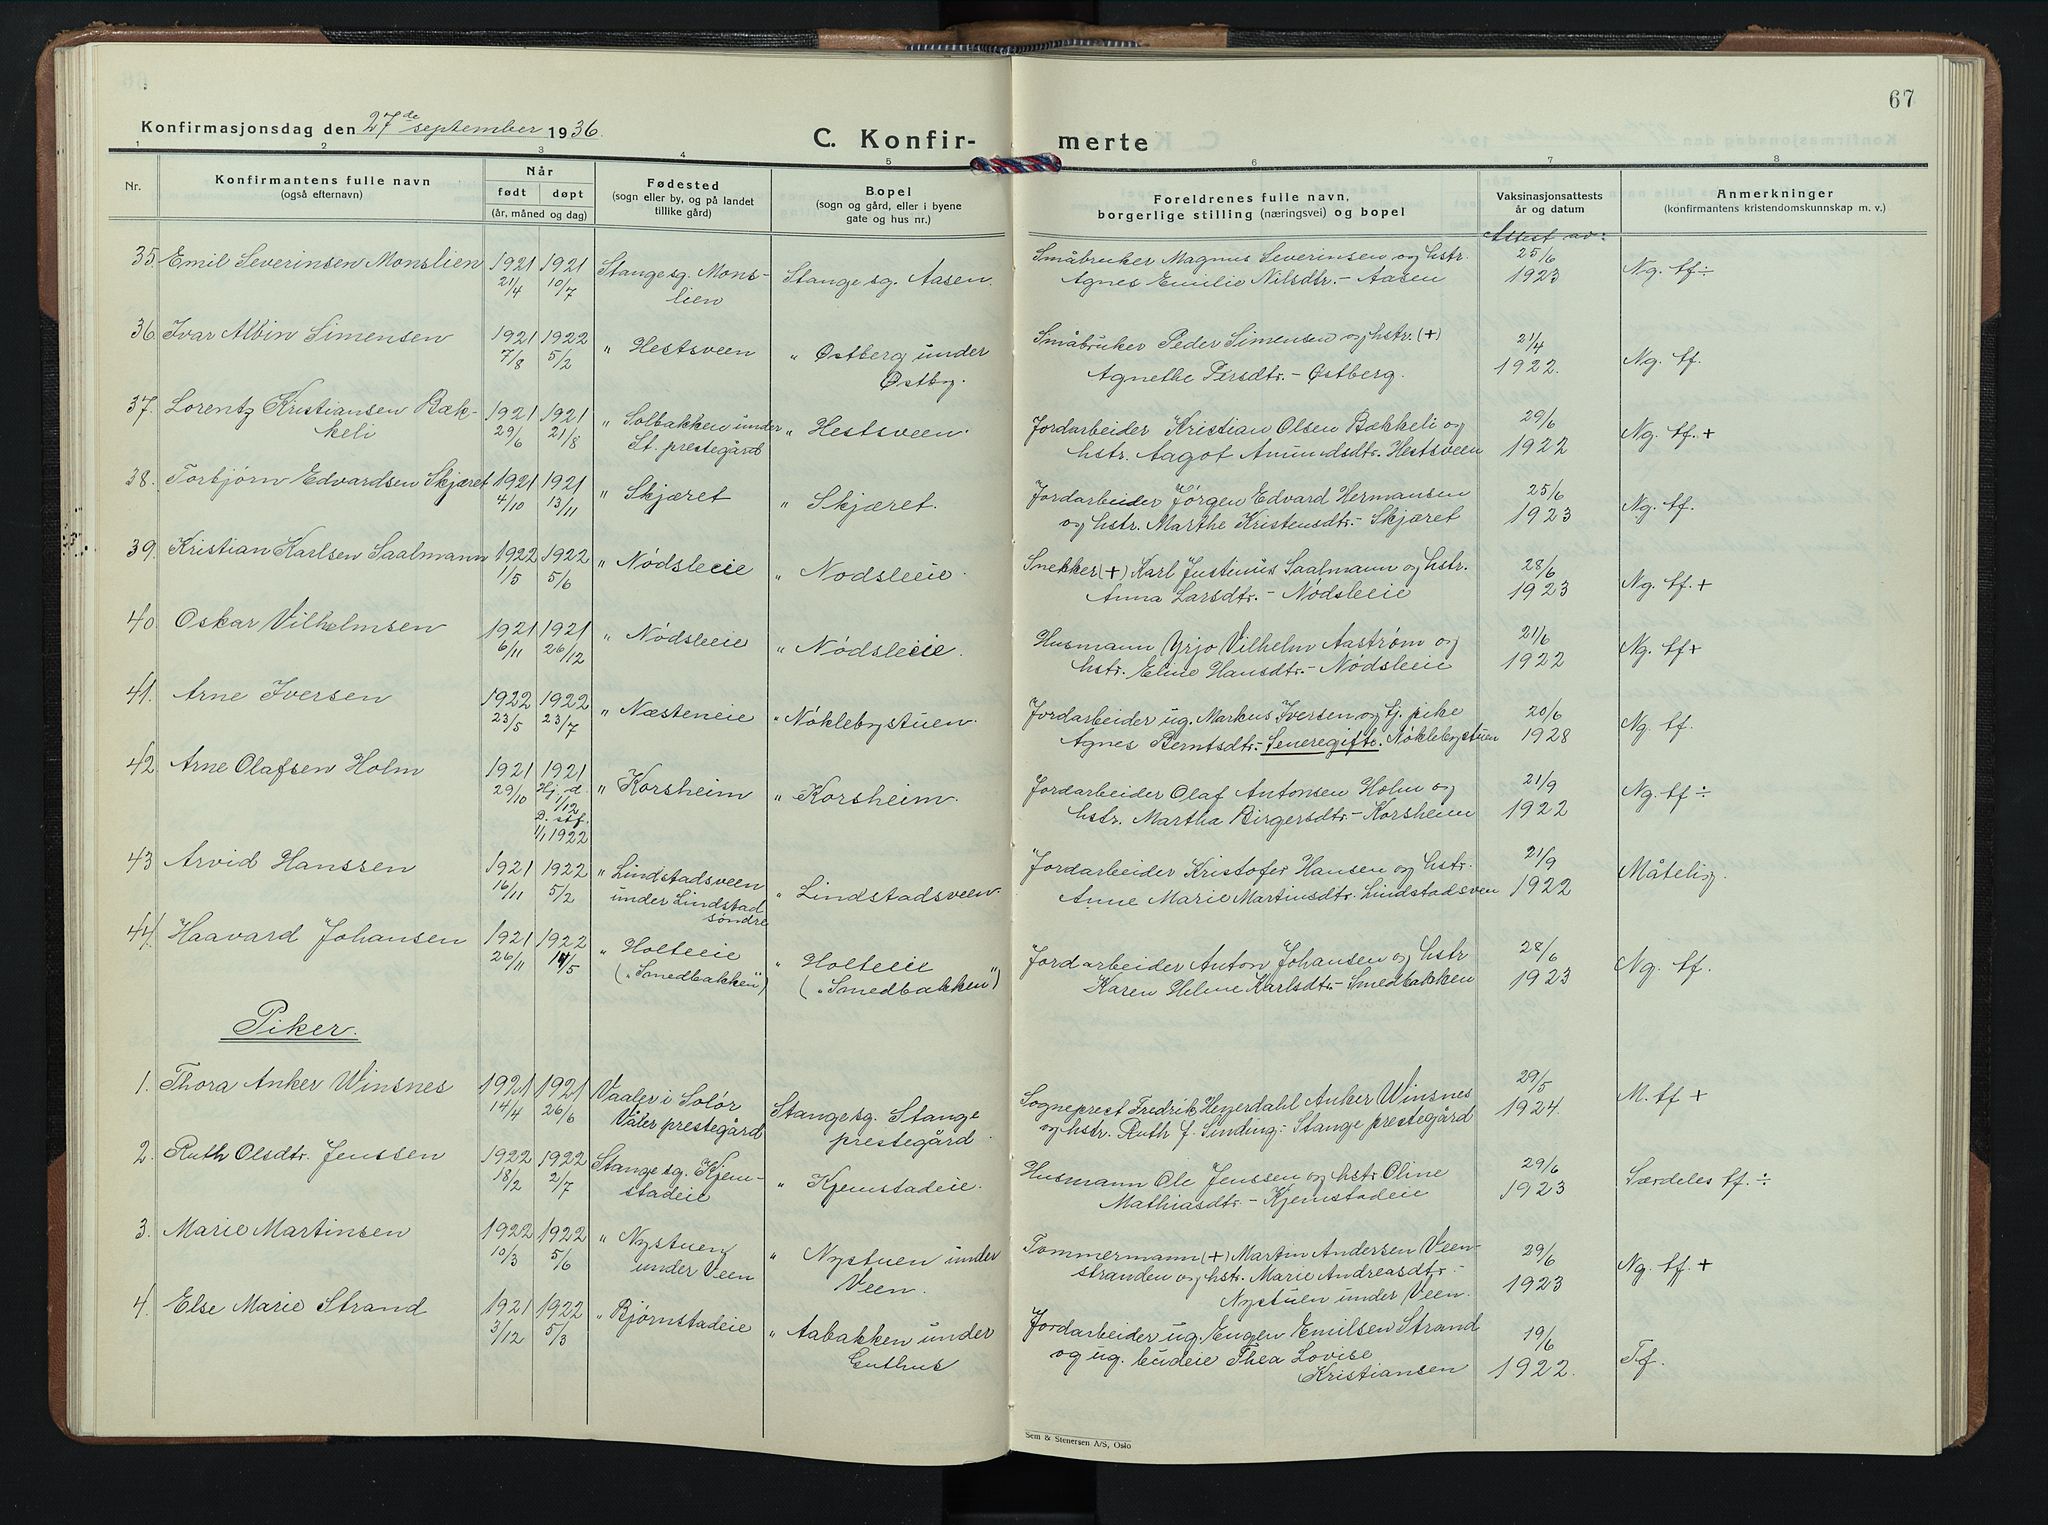 67
Konfirmasjonsdag den 27de september 1936.
C. Konfir-
merte
1 2 3 4 5 6 7 8
Nr.
Konfirmantens fulle navn
(også efternavn)
Når
født døpt
(år, måned og dag)
Fødested
(sogn eller by, og på landet
tillike gård)
Bopel
(sogn og gård, eller i byene
gate og hus nr.)
Foreldrenes fulle navn,
borgerlige stilling (næringsvei) og bopel
Vaksinasjonsattests
år og datum
Attest av:
Anmerkninger
(konfirmantens kristendomskunnskap m. v.)
35. Emil Severinsen Monslien 1921 21/4 1921 10/7 Stange sg. Mons-
lien Stange sg. Aasen. Småbruker Magnus Severinsen og hstr.
Agnes Emilie Nilsdtr. - Aasen 25/6 1923 Ng. tf ÷
36. Ivar Albin Simensen 1921 7/8 1922 5/2 " Hestsveen " Østberg under
Østby. Småbruker Peder Simensen og hstr. (+)
Agnethe Persdtr. - Østberg. 21/4 1922. Ng. tf.
37. Lorentz Kristiansen Bæk-
keli 1921 29/6 1921 21/8 " Solbakken under
St. prestegård " Hestsveen. Jordarbeider Kristian Olsen Bækkeli og
hstr. Aagot Amundsdtr. Hestsveen 29/6 1922 Ng. tf. +
38. Torbjørn Edvardsen Skjæret 1921 4/10 1921 13/11 " Skjæret " Skjæret. Jordarbeider Jørgen Edvard Hermansen
og hstr. Marthe Kristensdtr. - Skjæret 25/6 1923 Ng. tf.
39. Kristian Karlsen Saalmann 1922 1/5 1922 5/6 " Nødsleeie " Nodsleeie. Snekker (+) Karl Justinus Saalmann og hstr.
Anna Larsdtr. - Nødsleeie 28/6 1923 Ng. tf. +
40. Oskar Vilhelmsen 1921 6/11 1921 26/12 " Nødsleeie " Nødsleeie. Husmann Yrjo Vilhelm Aastrøm og
hstr. Eline Hansdtr. - Nødsleeie 21/6 1922 Ng. tf +
41. Arne Iversen 1922 23/5 1922 23/7 " Næsteneie " Nøklebystuen. Jordarbeider ug. Markus Iversen og Gj. pike
Agnes Berntsdtr. - Seneregifte. Nøklebystuen 20/6 1928 Ng. tf.
42. Arne Olafsen Holm 1921 29/10 1921
Hj. d.
1/12
D. stf.
1/1 1922 " Korsheim " Korsheim. Jordarbeider Olaf Antonsen Holm og
hstr. Martha Birgersdtr - Korsheim 21/9 1922 Ng. tf ÷
43 Arvid Hanssen 1921 16/11 1922 5/2 " Lindstadsveen
under Lindstad
søndre " Lindstadsveen Jordarbeider Kristofer Hansen og hstr.
Anne Marie Martinsdtr. Lindstadsven 21/9 1922 Måtelig.
44. Haavard Johansen 1921 26/11 1922 14/5 " Holteeie
("Smedbakken") " Holteeie
("Smedbakken") Jordarbeider Anton Johansen og hstr
Karen Helene Karlsdtr - Smedbakken 28/6 1923 Ng. tf.
Piker.
1. Thora Anker Winsnes 1921 14/4 1921 26/6 Vaaler i Solør
Våler prestegård Stange sg. Stange
prestegård. Sogneprest Fredrik Heyerdahl Anker Winsnes
og hstr. Ruth f. Sinding: Stange prestegård 29/5 1924. M. tf +
2. Ruth Olsdtr. Jenssen 1922 18/2 1922 2/7 Stange sg. Kjem-
stadeie " Kjemstadeie. Husmann Ole Jenssen og hstr Oline
Mathiasdtr - Kjemstadeie 29/6 1923 Særdeles tf. ÷
3. Marie Martinsen 1922 10/3 1922 5/6 " Nystuen
under Veen " Nystuen under
Veen. Tømmermann (+) Martin Andersen Veen-
stranden og hstr. Marie Andreasdtr. -
Nystuen under Veen. 29/6 1923 Ng. tf. +
4. Else Marie Strand 1921 3/12 1922 5/3 " Bjørnstadeie " Aabakken under
Guthus Jordarbeider ug. Eugen Emilsen Strand
og ug. budeie Thea Lovise
Kristiansen 19/6 1922. Tf.
Sem & Stenersen A/S, Oslo